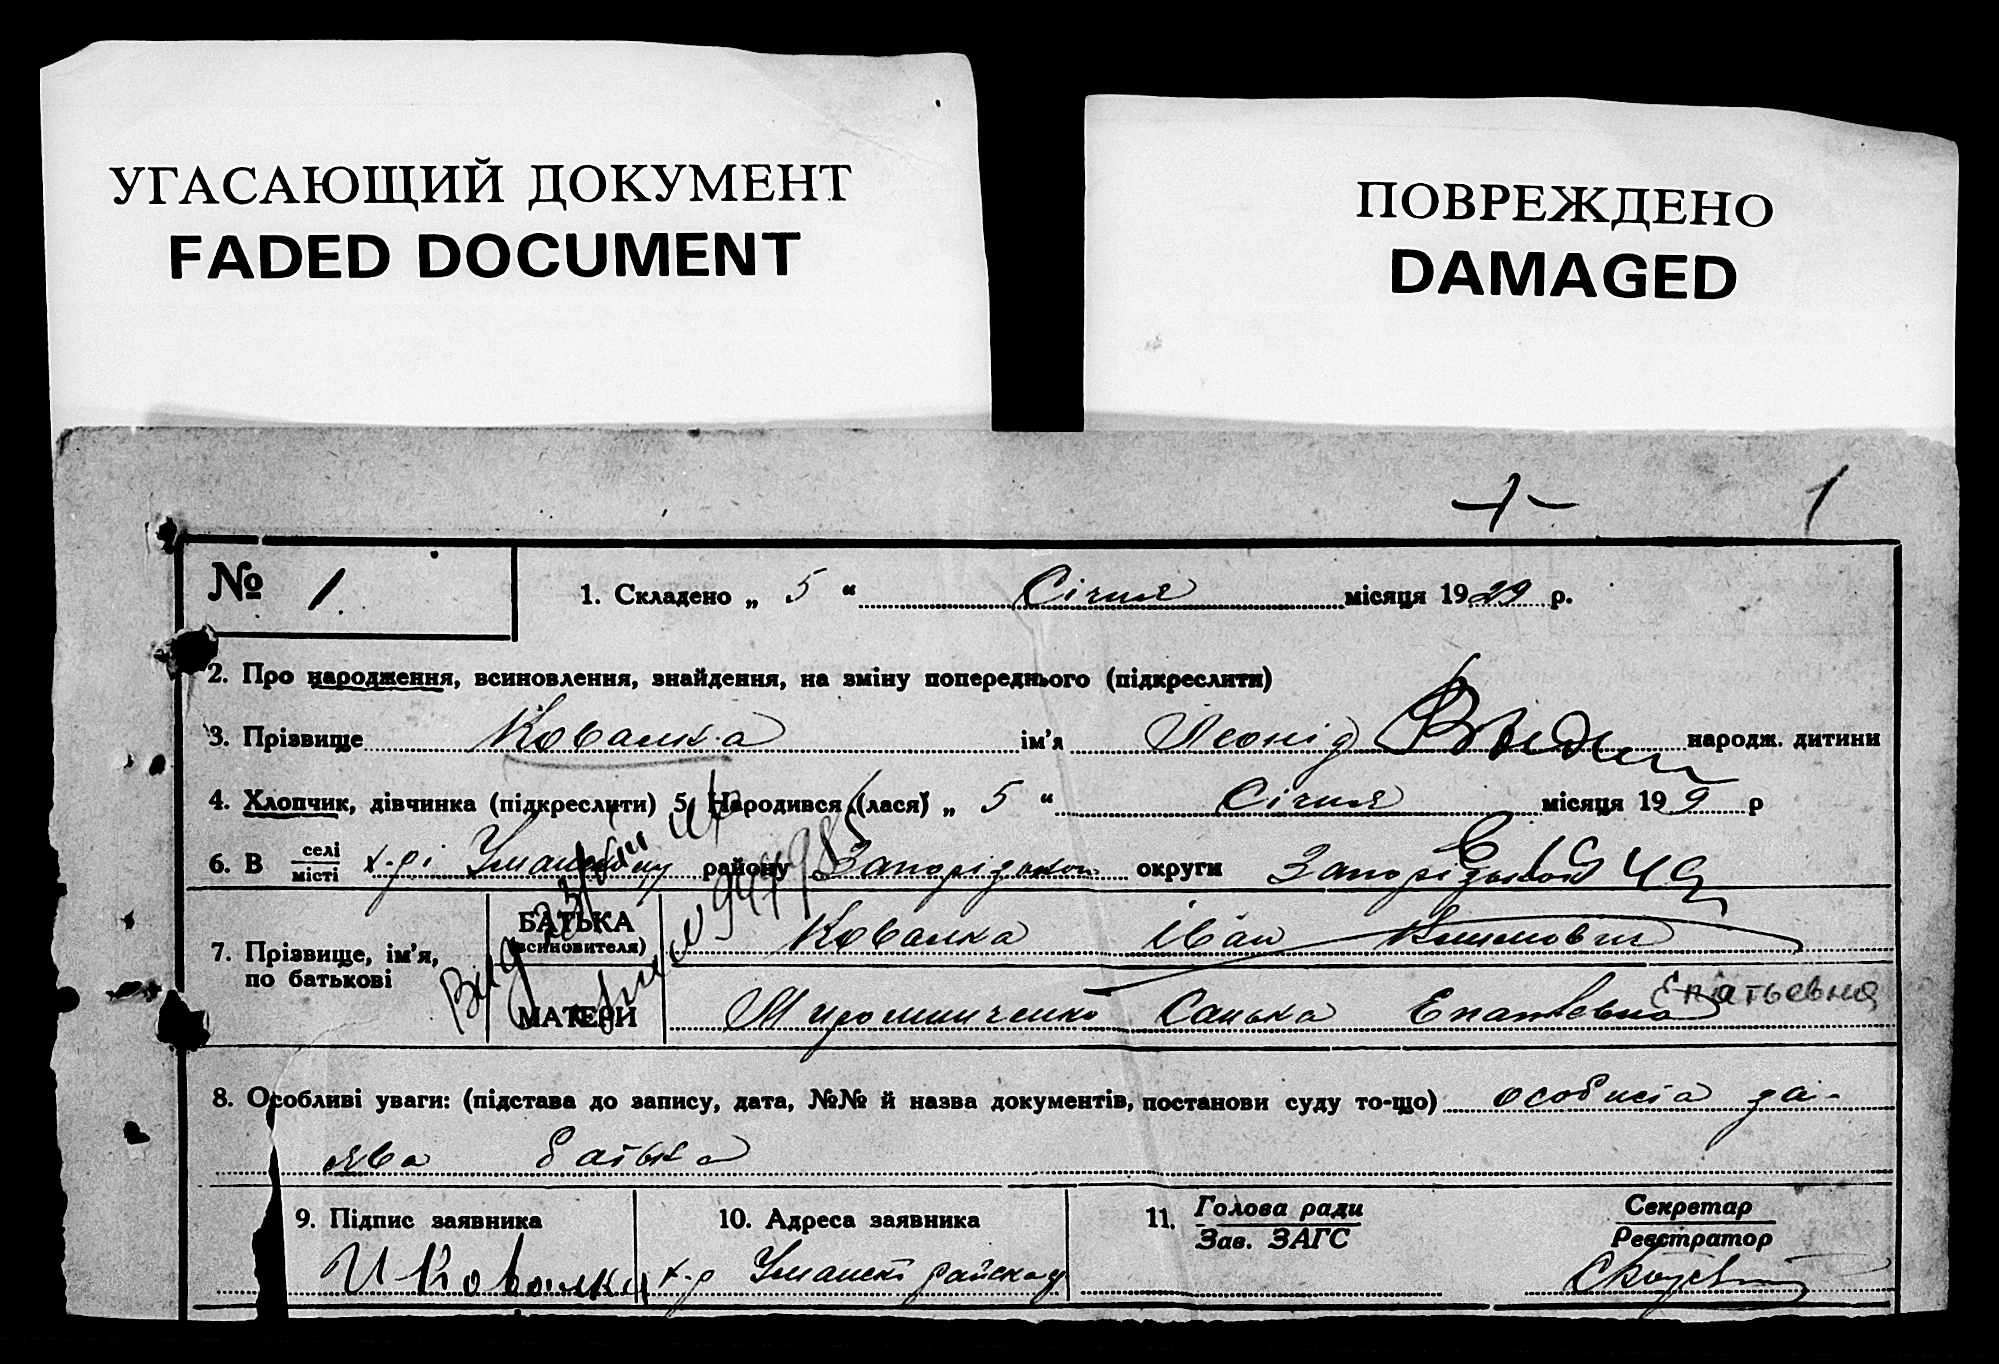 УГАСАЮЩИЙ ДОКУМЕНТ
FADED DOCUMENT
ПОВРЕЖДЕНО
DAMAGED
1
№ 1.
1. Складено „ 5 “ Січня місяця 1929 р.
2. Про народження, всиновлення, знайдення, на зміну попереднього (підкреслити)
3. Прізвище Ковалка ім'я Леонід народж. дитини
4. Хлопчик, дівчинка (підкреслити) 5. Народився (лася) „ 5 “ Січня місяця 199 р
6. В селі місті х-рі району Запорізького округи
7. Прізвище, ім'я, по батькові
БАТЬКА (всиновителя) Ковалка Іван Климович
МАТЕРИ Мирошниченко Санька Епатьевна Епатьевна
8. Особливі уваги: (підстава до запису, дата, №№ й назва документів, постанови суду то-що) особиста за-
ява батька
9. Підпис заявника
И Ковалка
10. Адреса заявника
х-р
11. Голова ради
Зав. ЗАГС
Секретар
Реєстратор